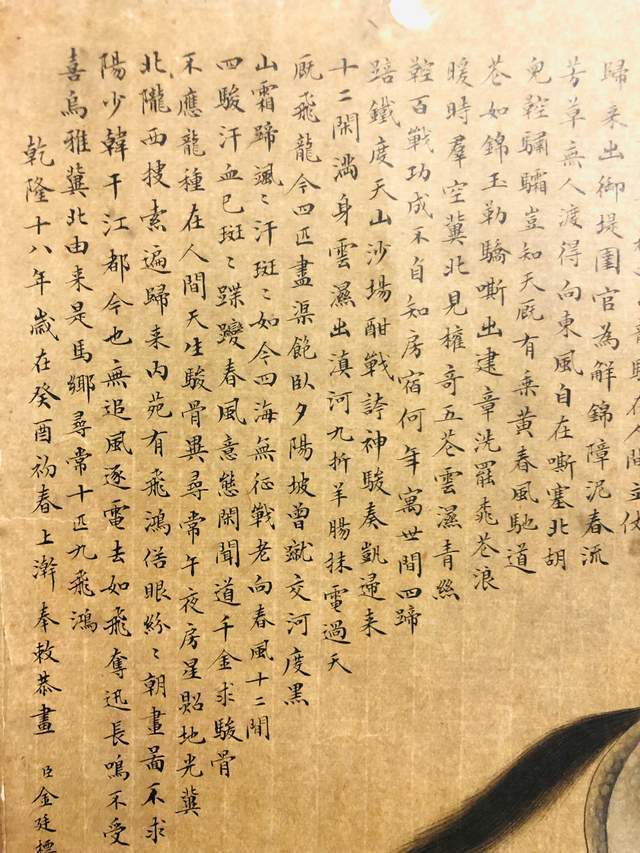 在人間立仗
歸来出御堤圉官為解錦障泥春流
芳草無人渡得向東風自在嘶塞北胡
兒鞚驌驦豈知天厩有乗黄春風馳道
花如錦玉勒驕嘶出建章洗罷桃花浪
暖時羣空冀北見權奇五花雲濕青絲
鞚百戰功成不自知房宿何年寓世間四蹄
踣鐵度天山沙場酣戰誇神駿奏凱歸来
十二閑満身雲濕出滇河九折羊腸抹電過天
厩飛龍今四匹盡渠飽臥夕陽坡曾蹴交河度黒
山霜蹄颯〻汗斑〻如今四海無征戰老向春風十二閑
四駿汗血已斑〻蹀躞春風意態閑聞道千金求駿骨
不應龍種在人間天生駿骨異尋常午夜房星貺地光冀
北隴西搜索遍歸来内苑有飛鴻俗眼紛〻朝畫啚不求
陽少韓干江都今也無追風逐電去如飛奮迅長鳴不受
喜烏雅冀北由来是馬郷尋常十匹九飛鴻
乾隆十八年歲在癸酉初春上澣奉敕恭畫 臣金廷標